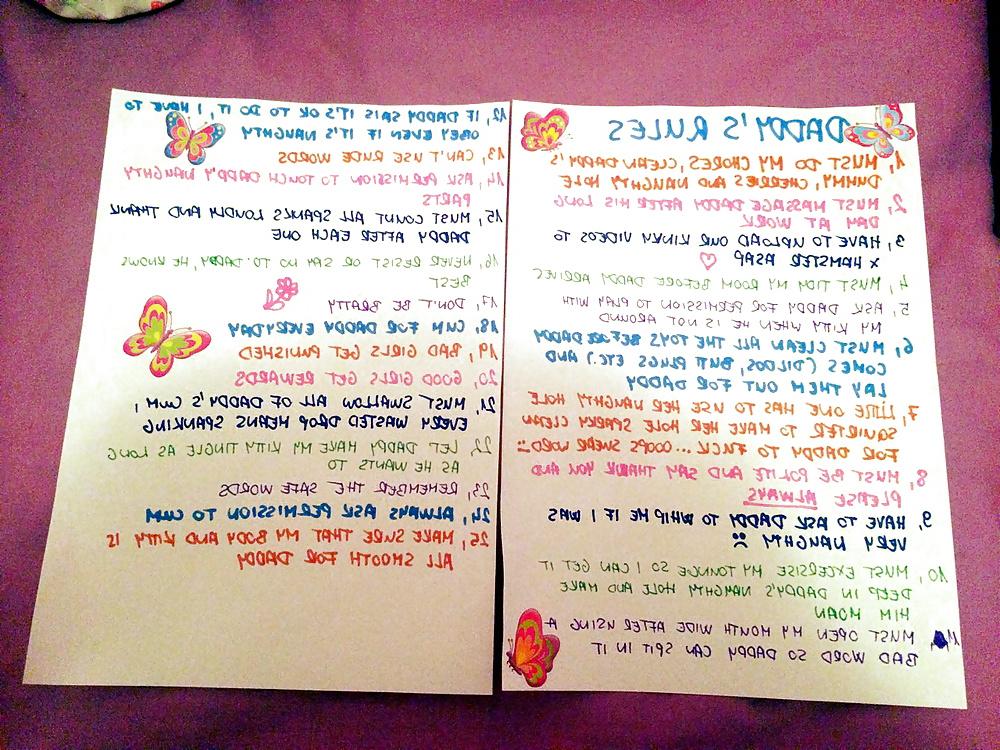 DADDY'S RULES
1, MUST DO MY CHORES, CLEAN DADDY'S
DUMMY, CHERRIES AND NAUGHTY HOLE
2, MUST MASSAGE DADDY AFTER HIS LONG
DAY AT WORK
3, HAVE TO UPLOAD OUR KINKY VIDEOS TO
X HAMSTER ASAP ♡
4, MUST TIDY MY ROOM BEFORE DADDY ARRIVES
5, ASK DADDY FOR PERMISSION TO PLAY WITH
MY KITTY WHEN HE IS NOT AROUND
6, MUST CLEAN ALL THE TOYS BEFORE DADDY
COMES (DILDOS, BUTT PLUGS ETC.) AND
LAY THEM OUT FOR DADDY
7, LITTLE ONE HAS TO USE HER NAUGHTY HOLE
SQUIRTER TO MAKE HER HOLE SPARKLY CLEAN
FOR DADDY TO FUCK ...OOOPS SWEAR WORD
8, MUST BE POLITE AND SAY THANK YOU AND
PLEASE ALWAYS
9, HAVE TO ASK DADDY TO WHIP ME IF I WAS
VERY NAUGHTY
10, MUST EXCERSISE MY TONNGE SO I CAN GET IT
DEEP IN DADDY'S NAUGHTY HOLE AND MAKE
HIM MOAN
11, MUST OPEN MY MOUTH WIDE AFTER USING A
BAD WORD SO DADDY CAN SPIT IN IT
12, IF DADDY SAIS IT'S OK TO DO IT, I HAVE TO
OBEY EVEN IF IT'S NAUGHTY
13, CAN'T USE RUDE WORDS
14, ASK PERMISSION TO TOUCH DADDY'S NAUGHTY
PARTS
15, MUST COUNT ALL SPANKS LOUDLY AND THANK
DADDY AFTER EACH ONE
16, NEVER RESIST OR SAY NO TO DADDY, HE KNOWS
BEST
17, DON'T BE BRATTY
18, CUM FOR DADDY EVERYDAY
19, BAD GIRLS GET PUNISHED
20, GOOD GIRLS GET REWARDS
21, MUST SWALLOW ALL OF DADDY'S CUM,
EVERY WASTED DROP MEANS SPANKING
22, LET DADDY MAKE MY KITTY TINGLE AS LONG
AS HE WANTS TO
23, REMEMBER THE SAFE WORDS
24, ALWAYS ASK PERMISSION TO CUM
25, MAKE SURE THAT MY BODY AND KITTY IS
ALL SMOOTH FOR DADDY